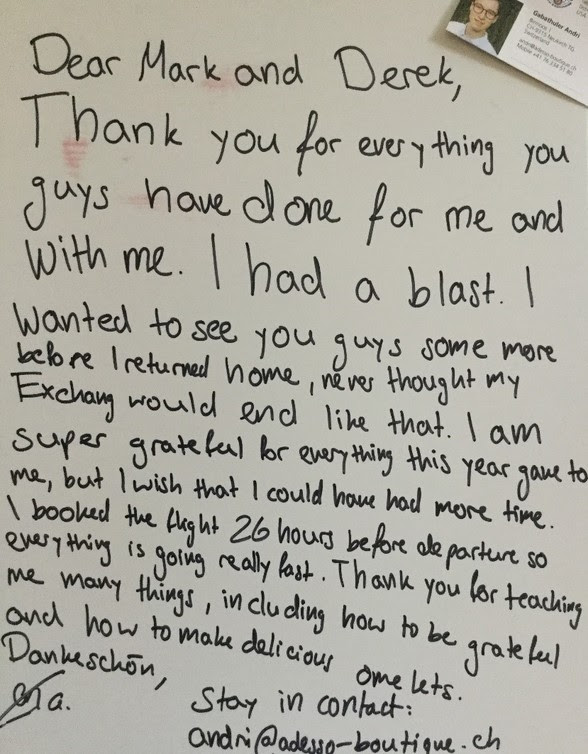 Gabathuler Andri
Switzerland
Dear Mark and Derek,
Thank you for everything you
guys have done for me and
With me. I had a blast. I
Wanted to see you guys some more
before I returned home, never thought my
Exchang would end like that. I am
super grateful for everything this year gave to
me, but I wish that I could have had more time.
I booked the flight 26 hours before departure so
everything is going really fast. Thank you for teaching
me many things, including how to be grateful
and how to make delicious omelets.
Dankeschön,
Stay in contact:
andri@adesso-boutique.ch